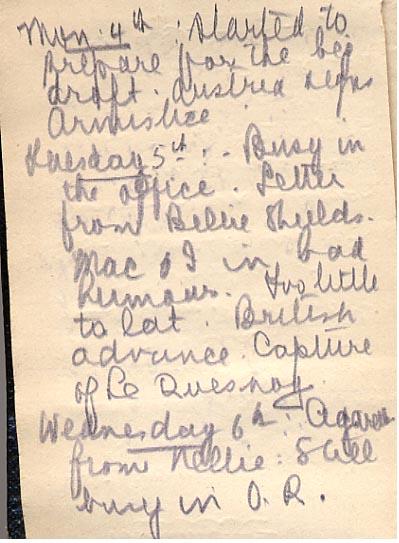 Mon. 4th : Started to
prepare for the big
draft. Austria signs
Armistice
Tuesday 5th : . Busy in
the office. Letter
from Bellie Shields.
Mac & I in bad
humour. Too little
to eat. British
advance. Capture
of Le Quesnoy.
Wednesday 6th :
from Nellie : Still
busy in O. R.